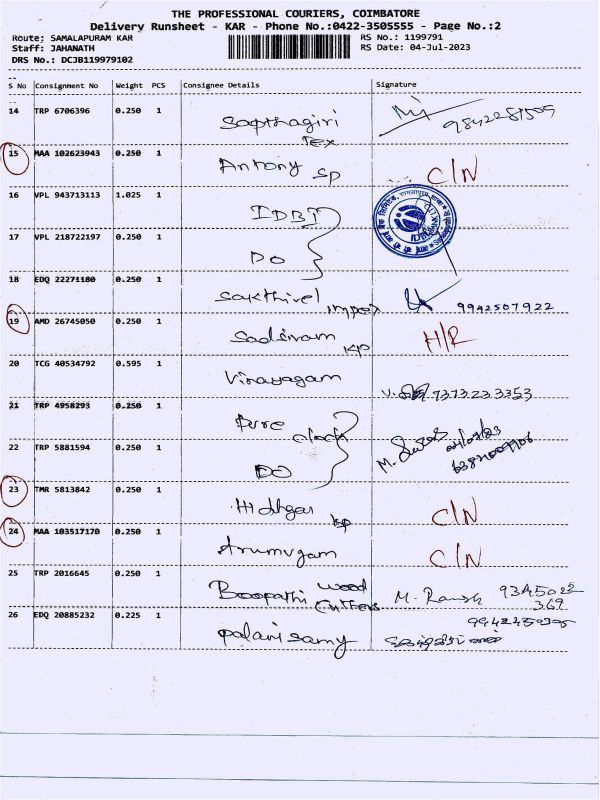 THE PROFESSIONAL COURIERS, COIMBATORE
Delivery Runsheet - KAR - Phone No.:0422-3505555 - Page No.:2
Route: SAMALAPURAM KAR RS No.: 1199791
Staff: JAHANATH RS Date: 04-Jul-2023
DRS No.: DCJB119979102
S No Consignment No Weight PCS Consignee Details Signature
14 TRP 6706396 0.250 1 Sapthagiri Tex
15 MAA 102623943 0.250 1 Antony sp C/N
16 VPL 943713113 1.025 1 IDBI
17 VPL 218722197 0.250 1 DO
18 EDQ 22271180 0.250 1 Sakthivel impex 9942507922
19 AMD 26745050 0.250 1 Sadsivam kp H/R
20 TCG 40534792 0.595 1 Vinayagam 9373233353
21 TRP 4958293 0.250 1 Pure
22 TRP 5881594 0.250 1 DO
23 TMR 5813842 0.250 1 kp C/N
24 MAA 103517170 0.250 1 Arumugam C/N
25 TRP 2016645 0.250 1 Boopathi wood Cutters M.
26 EDQ 20885232 0.225 1 palanisamy